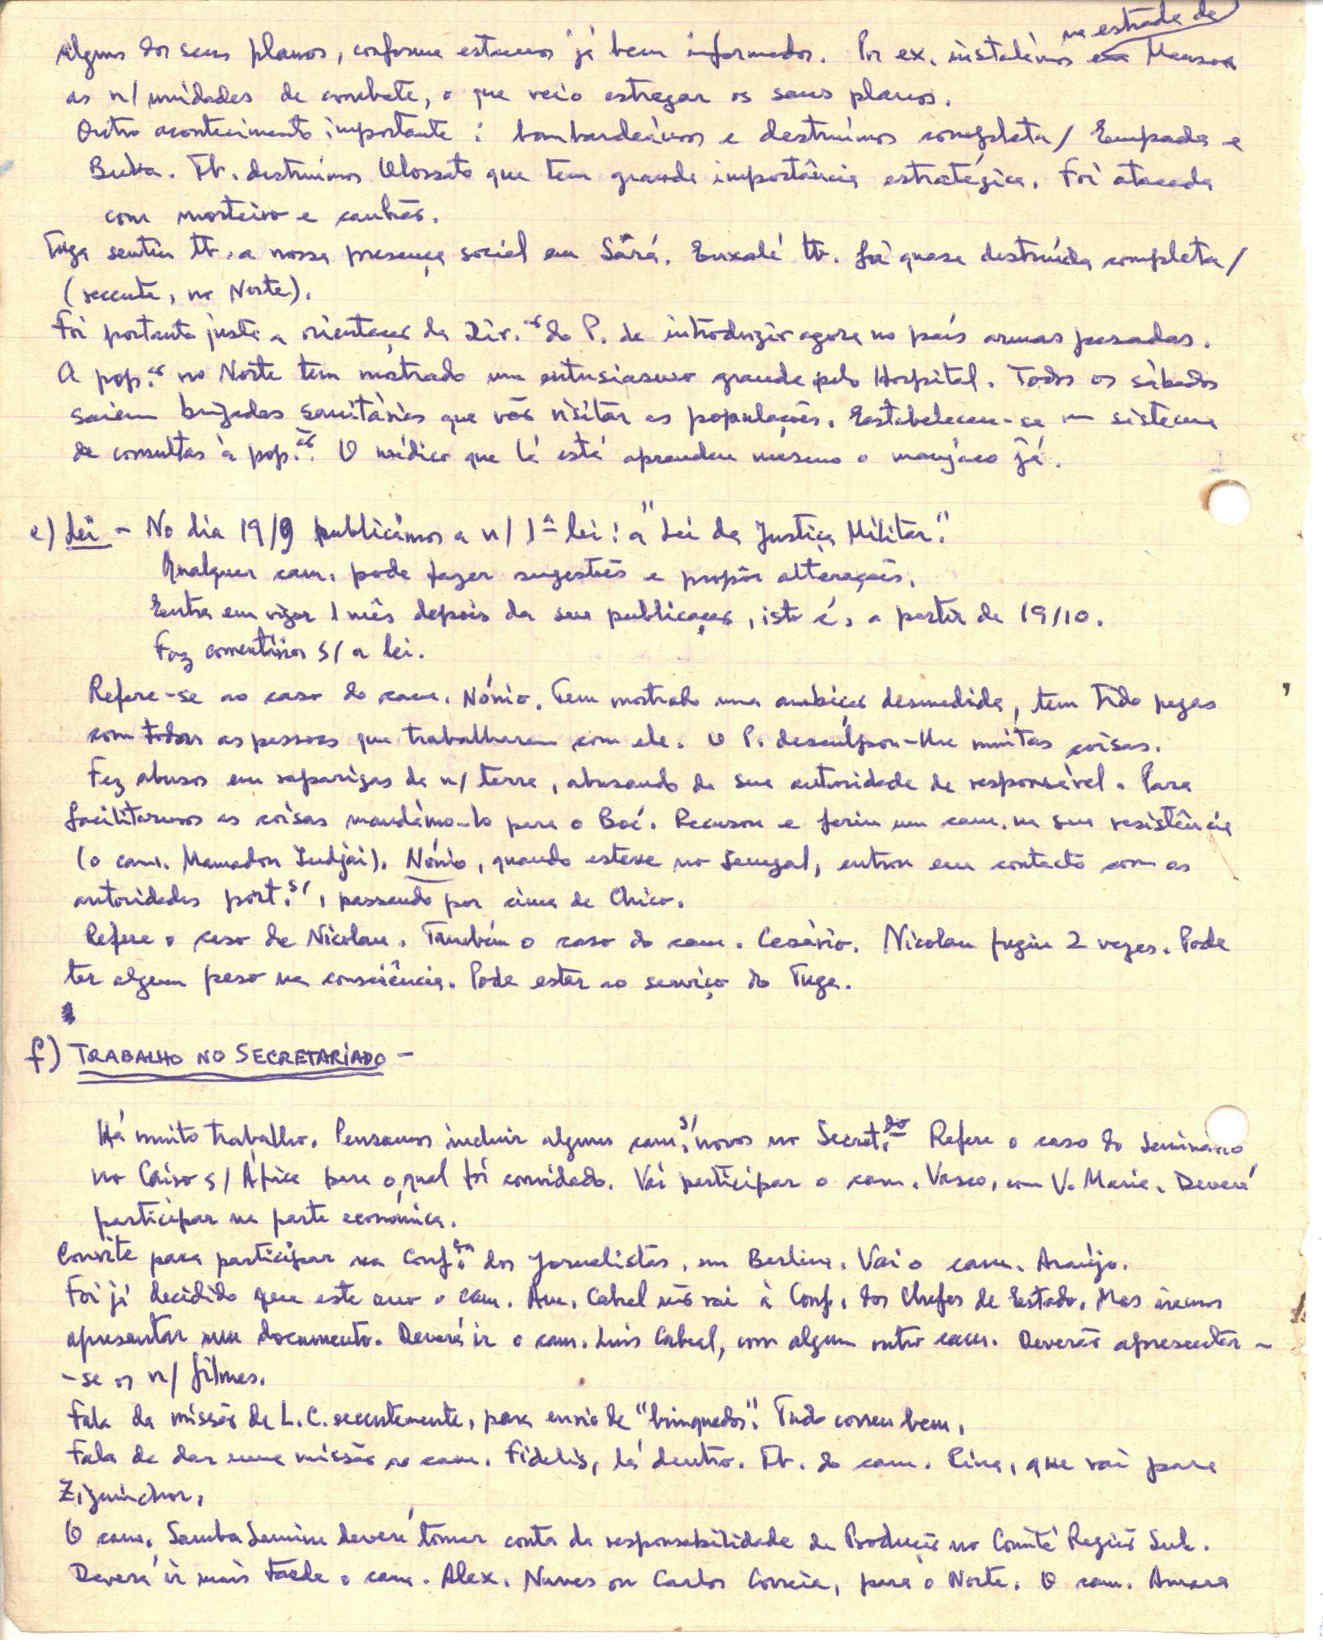 alguns dos seus planos, conforme estamos já bem informados. Por ex. instalámos na estrada de Mansoa
as n/ unidades de combate, o que veio estragar os seus planos.
Outro acontecimento importante: bombardeámos e destruímos completa/ Empada e
Buba. Tb. destruímos Olossato que tem grande importância estratégica. Foi atacada
com morteiro e canhão.
Tuga sentiu tb. a nossa presença social em Sárá. Enxalé tb. foi quase destruída completa/
(recente, no Norte).
Foi portanto justa a orientação da Dir.ão do P. de introduzir agora no país armas pesadas.
A pop.ão no Norte tem mostrado um entusiasmo grande pelo Hospital. Todos os sábados
saiem brigadas sanitárias que vão visitar as populações. Estabeleceu-se um sistema
de consultas à pop.ão. O médico que lá está aprendeu mesmo o manjaco já.
e) Lei - No dia 19/9 publicámos a n/ 1ª lei: a "Lei da Justiça Militar".
Qualquer cam. pode fazer sugestões e propôr alterações.
Entra em vigor 1 mês depois da sua publicação, isto é, a partir de 19/10.
Faz comentários s/ a lei.
Refere-se ao caso do cam. Nónio. Tem mostrado uma ambição desmedida, tem tido pegas
com todas as pessoas que trabalharam com ele. O P. desculpou-lhe muitas coisas.
Fez abusos em raparigas da n/ terra, abusando da sua autoridade de responsável. Para
facilitarmos as coisas mandámo-lo para o Boé. Recusou e feriu um cam. na sua resistência
(o cam. Mamadou Indjai). Nónio, quando esteve no Senegal, entrou em contacto com as
autoridades port.s/, passando por cima de Chico.
Refere o caso de Nicolau. Também o caso do cam. Cesário. Nicolau fugiu 2 vezes. Pode
ter algum peso na consciência. Pode estar ao serviço do Tuga.
f) TRABALHO NO SECRETARIADO -
Há muito trabalho. Pensamos incluir alguns cam.s/ novos no Secret.do Refere o caso do Seminário
no Cairo s/ África para o qual foi convidado. Vai participar o cam. Vasco, com V. Maria. Deverá
participar na parte económica.
Convite para participar na Conf.ia dos Jornalistas, em Berlim. Vai o cam. Araújo.
Foi já decidido que este ano o cam. Am. Cabral não vai à Conf. dos Chefes de Estado. Mas iremos
apresentar um documento. Deverá ir o cam. Luis Cabral, com algum outro cam. Deverão apresentar-
-se os n/ filmes.
Fala da missão de L.C. recentemente, para envio de "brinquedos". Tudo correu bem.
Fala de dar uma missão ao cam. Fidelis, lá dentro. Tb. do cam. Pina, que vai para
Ziguinchor.
O cam. Samba Lamine deverá tomar conta da responsabilidade da Produção no Comité Região Sul.
Deverá ir mais tarde o cam. Alex. Nunes ou Carlos Correia, para o Norte. O cam. Amara